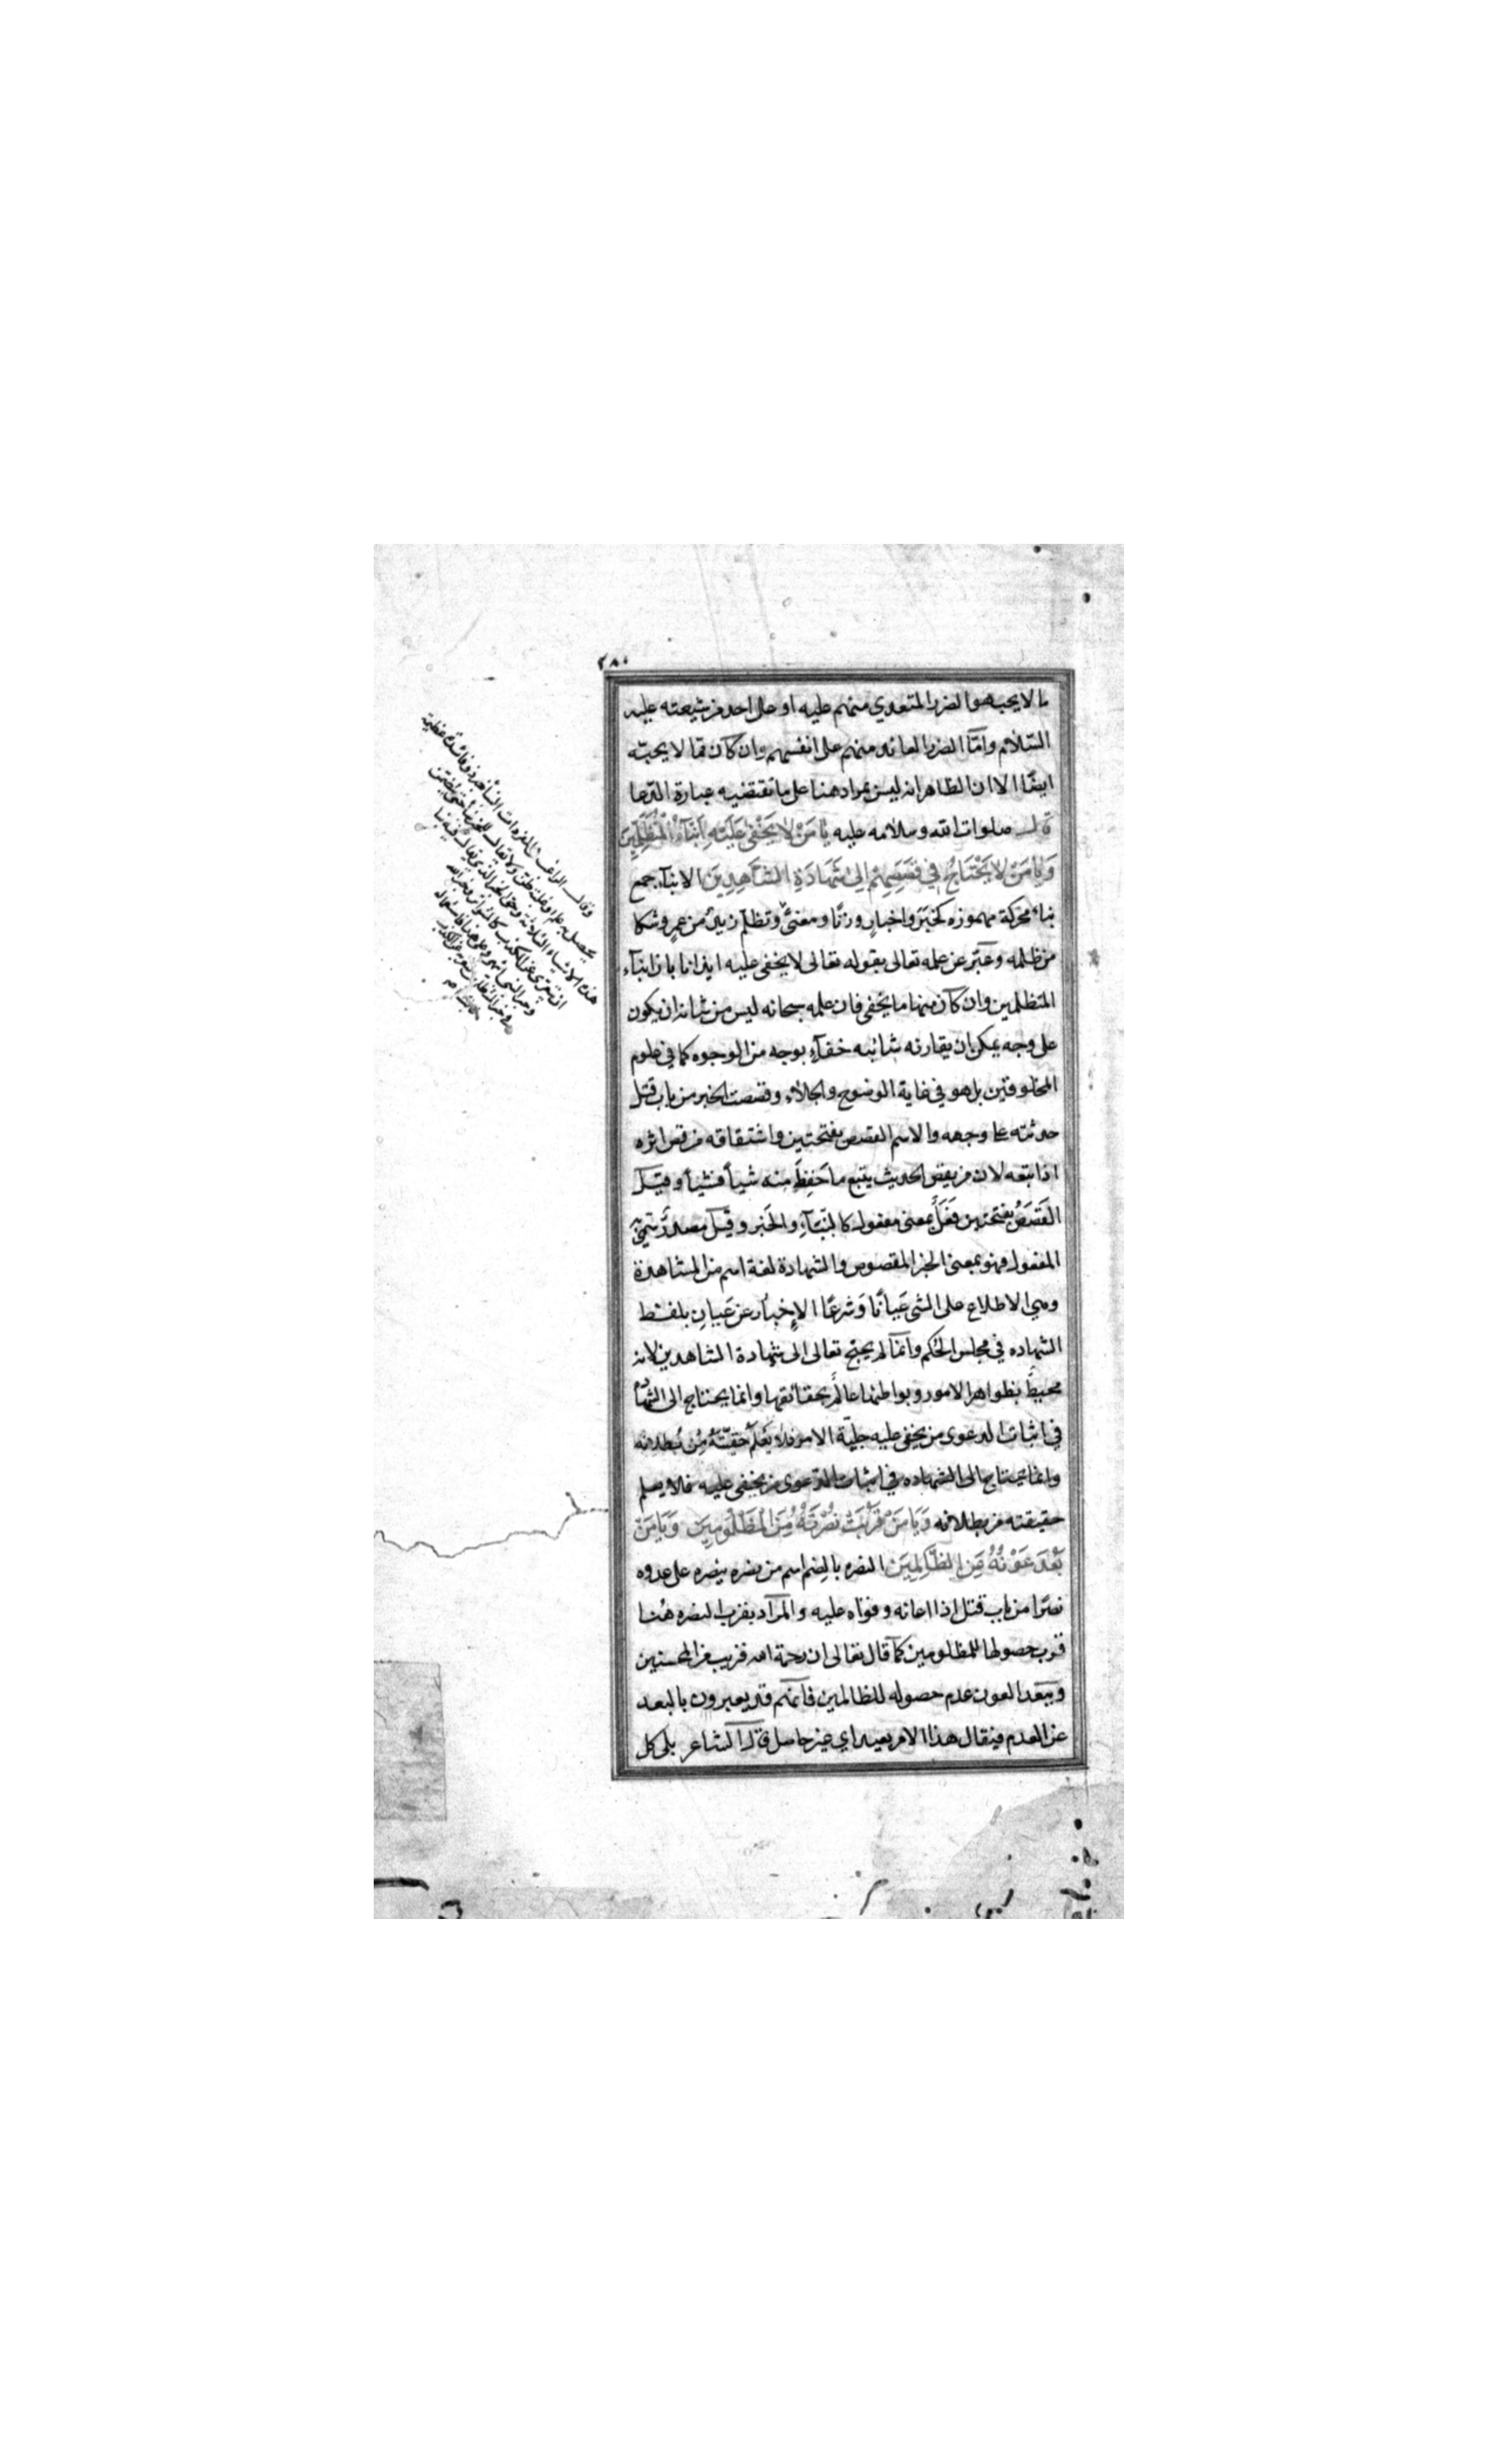 ٢٨٠
ما لا يحبه هو الضرر المتعدي منهم عليه او على احد من شيعته عليه
السّلام وامّا الضرر العائد منهم على انفسهم وان كان مما لا يحبّه
ايضًا الا ان الظاهر انه ليس بمراد هنا على ما تقتضيه عبارة الدعا
قال صلوات الله وسلامه عليه يٰا مَنْ لاٰ يَخْفىٰ عَلَيْهِ اَنْبَآءُ الْمُتَظَلِّمِينَ
وَيٰا مَنْ لاٰ يَحْتٰاجُ فِي قَصَصِهِمْ اِلىٰ شَهَادَةِ الشّٰاهِدِينَ الانبآء جمع
نباء محركة مهموزه كخبَر واخبارٍ وزنًا ومعنىً وتظلّم زيدٌ من عمرٍو شكا
من ظلمه وعبّر عن علمه تعالى بقوله تعالى لا يخفى عليه ايذانا بان انبآء
المتظلمين وان كان منها ما يخفى فان علمه سبحانه ليس من شانه ان يكون
على وجه يمكن ان يقارنه شائبه خفآءٍ بوجه من الوجوه كما في علوم
المخلوقين بل هو في غاية الوضوح والجلاء وقصصت الخبر من باب قتل
حدثته على وجهه والاسم القصص بفتحتين واشتقاقه من قص اثره
اذا تتبعه لان من يقص الحديث يتبع ما حَفِظَ منه شيأ فشيأ وقيل
القَصَصُ بفتحتين فَعَلٌ بمعنى مفعول كالنّبَآءِ والخَبر وقيل مصدرٌ سمّي به
المفعول فهو بمعنى الخبر المقصوص والشهادة لغة اسم من المشاهدة
وهي الاطلاع على الشي عَيانًا وَشرعًا الاِخبار عن عَيان بلفظ
الشهاده في مجلس الحُكم وانمآ لم يحتج تعالى الى شهادة الشاهدين لانه
محيطٌ بظواهر الامور وبواطنها عالمٌ بحقائقها وانما يحتاج الى الشهادة
في اثبات الدعوى من يخفى عليه جليّة الامر فلا يَعْلَمُ حَقيّتَهُ مِن بُطلانه
وانما يحتاج الى الشهاده في اثبات الدعوى من يخفى عليه فلا يعلم
حقيقته من بطلانه وَيٰا مَنْ قَرُبَتْ نُصْرَتُهُ مِنَ الْمَظْلُومِينَ وَيٰا مَنْ
بَعُدَ عَوْنُهُ عَنِ الظّٰالِمِينَ النصره بالضم اسم من نصره ينصره على عدوه
نصرًا من باب قتل اذا اعانه وقواه عليه والمرآد بقرب النصره هُنا
قرب حصولها للمظلومين كمآ قال تعالى ان رحمة الله قريب من المحسنين
وببعد العون عدم حصوله للظالمين فانهم قد يعبرون بالبعد
عن العدم فيقال هذا الامر بعيد اي غير حاصل قال الشاعر بلى كل
وقال الراغب المفردات النبأ خبر ذو فائدة عظيمة
يحصل به علم او غلبة ظن ولا يقال للخبر نبأ حتى يتضمن
هذه الاشياء الثلاثة وحق الخبر الذي يقال فيه نبأ
ان يتعرى عن الكذب كالتواتر وخبر الله